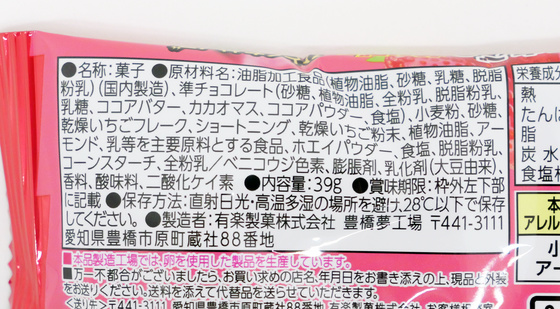 ●名称:菓子 ●原材料名:油脂加工食品(植物油脂、砂糖、乳糖、脱脂
粉乳)(国内製造)、準チョコレート(砂糖、植物油脂、全粉乳、脱脂粉乳、
乳糖、ココアバター、カカオマス、ココアパウダー、食塩)、小麦粉、砂糖、
乾燥いちごフレーク、ショートニング、乾燥いちご粉末、植物油脂、アー
モンド、乳等を主要原料とする食品、ホエイパウダー、食塩、脱脂粉乳、
コーンスターチ、全粉乳/ベニコウジ色素、膨脹剤、乳化剤(大豆由来)、
香料、酸味料、二酸化ケイ素 ●内容量:39g ●賞味期限:枠外左下部
に記載 ●保存方法:直射日光・高温多湿の場所を避け、28℃以下で保存
してください。●製造者:有楽製菓株式会社 豊橋夢工場 〒441-3111
愛知県豊橋市原町蔵社88番地
■本品製造工場では、卵を使用した製品を生産しています。
■万一不都合がございましたら、お買い求めの店名、年月日をお書き添えの上、現品と外装
をお送りください。送料を添えて代替品を送らせていただきます。
<送り先>〒441-3111 愛知県豊橋市原町蔵社88番地 有楽製菓株式会社 お客様相
栄養成分
熱
たんぱ
脂
炭水
食塩相
本
アレル
小
アー